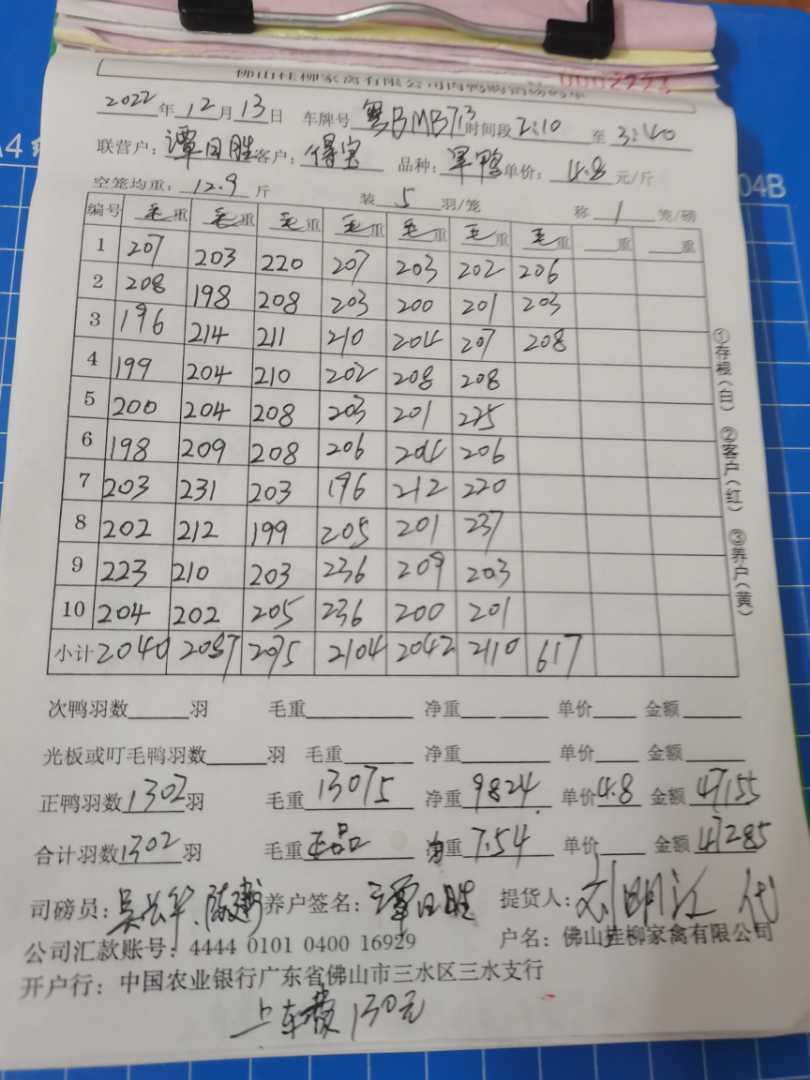 佛山桂柳家禽有限公司肉鸭销售磅码单
2022年12月13日 车牌号粤BMB713时间段2:10至3:40
联营户：谭日胜客户：得宝 品种：军鸭单价：4.8元/斤
空笼均重：12.9斤 装5羽/笼 称1笼/磅
编号 毛重 毛重 毛重 毛重 毛重 毛重 毛重 重 重
1 207 203 220 207 203 202 206
2 208 198 208 203 200 201 203
3 196 214 211 210 204 207 208
4 199 204 210 202 208 208
5 200 204 208 203 201 225
6 198 209 208 206 204 206
7 203 231 203 196 212 220
8 202 212 199 205 201 237
9 223 210 203 236 209 203
10 204 202 205 236 200 201
小计 2040 2087 2075 2104 2042 2110 617
①存根(白) ②客户(红) ③养户(黄)
次鸭羽数 羽 毛重 净重 单价 金额
光板或叮毛鸭羽数 羽 毛重 净重 单价 金额
正鸭羽数1302羽 毛重13075 净重9824. 单价4.8 金额47155
合计羽数1302羽 毛重正品 均重7.54 单价 金额47285
司磅员： 养户签名：谭日胜 提货人：刘明江 代
公司汇款账号：4444 0101 0400 16929 户名：佛山桂柳家禽有限公司
开户行：中国农业银行广东省佛山市三水区三水支行
上车费130元